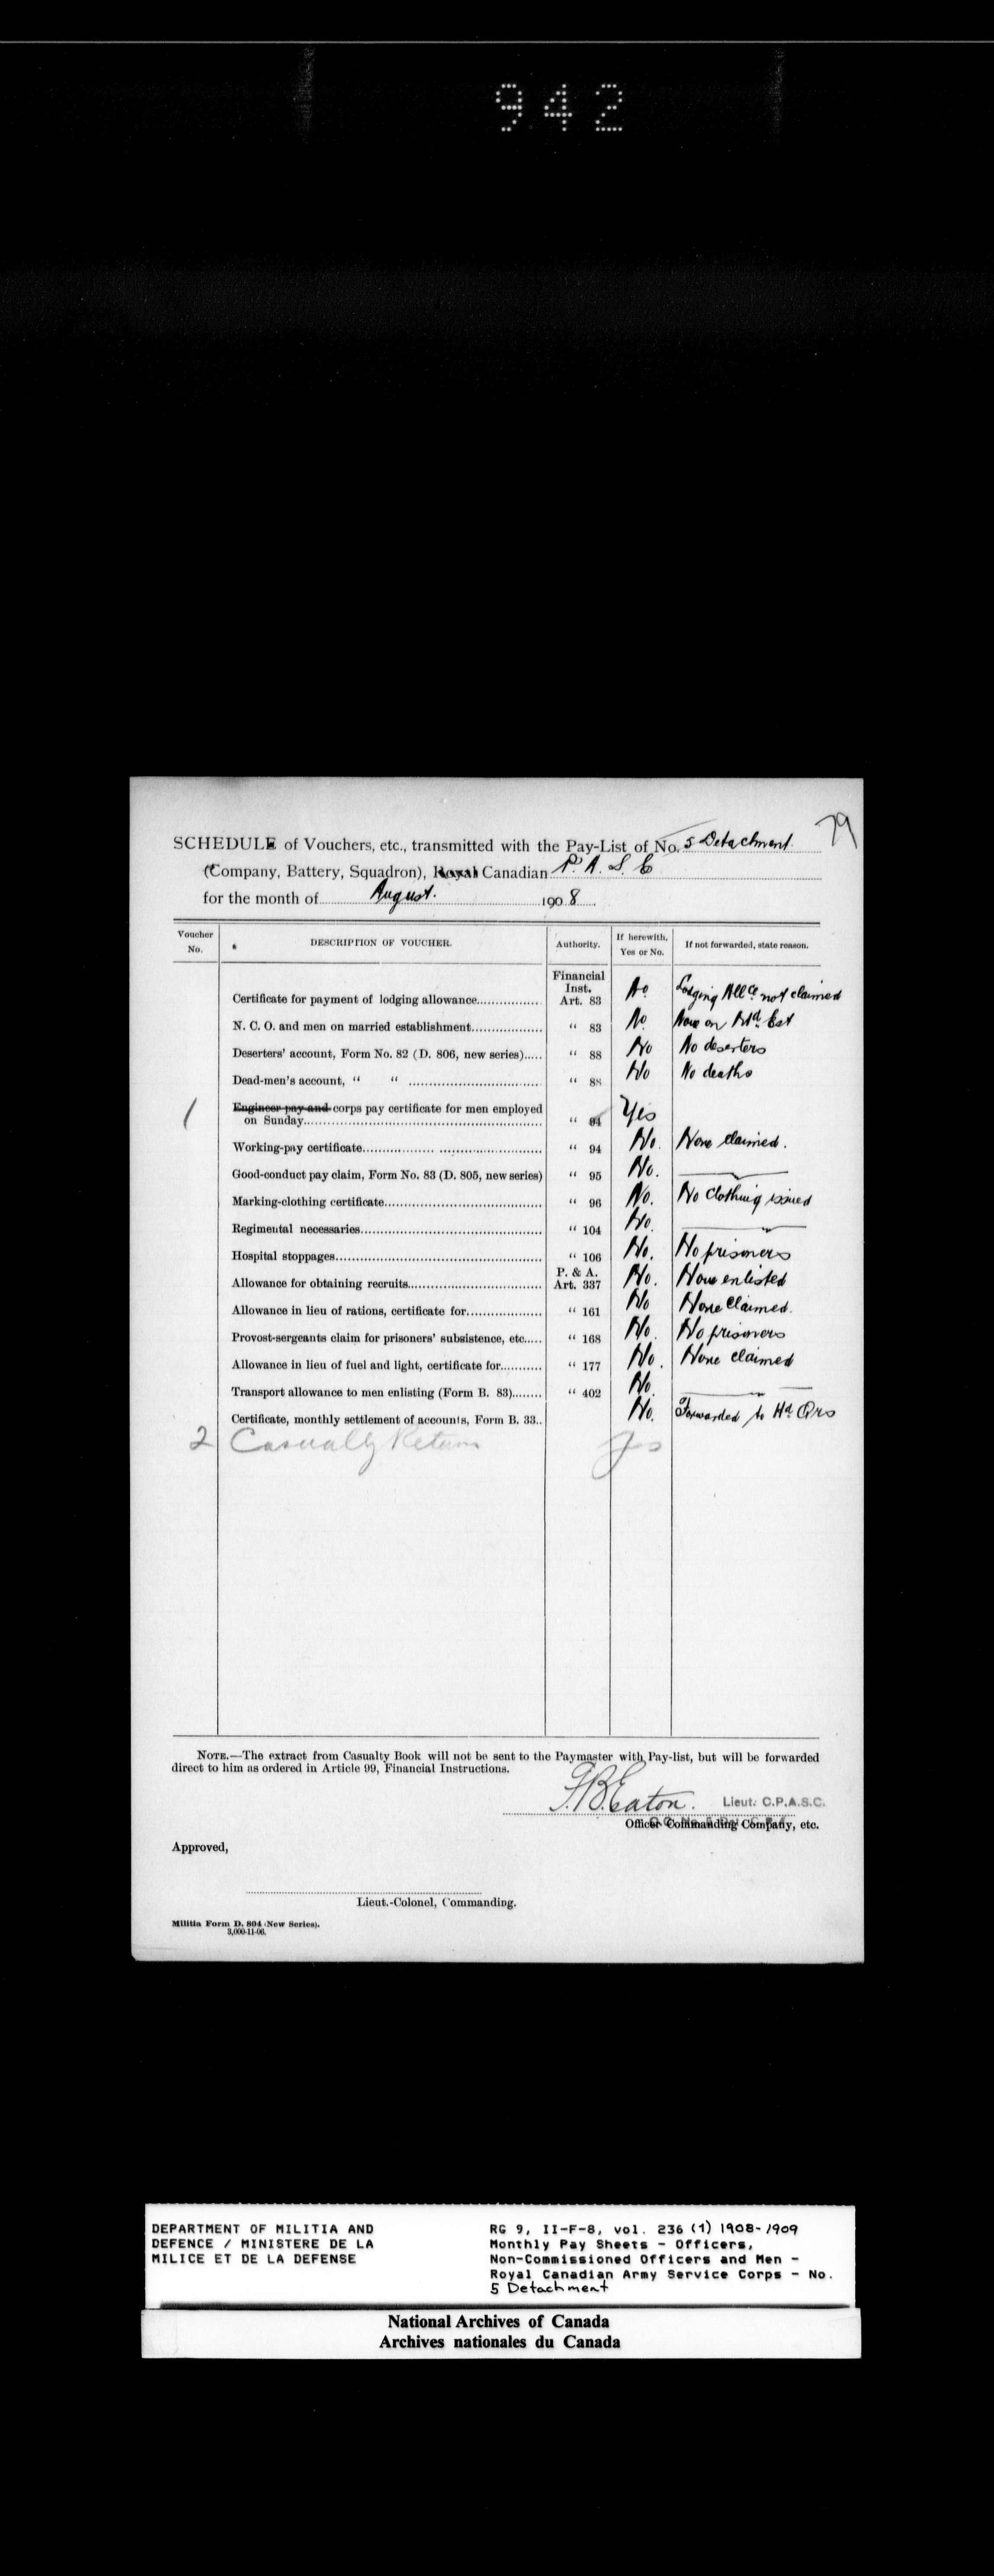 942
79
SCHEDULE of Vouchers, etc., transmitted with the Pay-List of No. 5 Detachment
(Company, Battery, Squadron), Royal Canadian P. A. S. C
for the month of August. 1908
Voucher No. DESCRIPTION OF VOUCHER. Authority. If herewith, Yes or No. If not forwarded, state reason.
Financial Inst.
Certificate for payment of lodging allowance Art. 83 No Lodging Allce not claimed
N. C. O. and men on married establishment " 83 No None on Md. Est
Deserters' account, Form No. 82 (D. 806, new series) " 88 No No deserters
Dead-men's account, " " " 88 No No deaths
1 Engineer pay and corps pay certificate for men employed
on Sunday " 94 Yes
Working-pay certificate " 94 No. None claimed.
Good-conduct pay claim, Form No. 83 (D. 805, new series) " 95 No.
Marking-clothing certificate " 96 No. No Clothing issued
Regimental necessaries " 104 No.
Hospital stoppages " 106 No. No prisoners
P. & A.
Allowance for obtaining recruits Art. 337 No. None enlisted
Allowance in lieu of rations, certificate for " 161 No None Claimed.
Provost-sergeants claim for prisoners' subsistence, etc " 168 No. No prisoners
Allowance in lieu of fuel and light, certificate for " 177 No. None claimed
Transport allowance to men enlisting (Form B. 83) " 402 No.
Certificate, monthly settlement of accounts, Form B. 33.. No. Forwarded to Hd. Qrs
2 Casualty Return yes
NOTE.—The extract from Casualty Book will not be sent to the Paymaster with Pay-list, but will be forwarded
direct to him as ordered in Article 99, Financial Instructions.
F.B. Eaton. Lieut. C.P.A.S.C.
Officer Commanding Company, etc.
Approved,
Lieut.-Colonel, Commanding.
Militia Form D. 804 (New Series).
3,000-11-06.
DEPARTMENT OF MILITIA AND
DEFENCE / MINISTERE DE LA
MILICE ET DE LA DEFENSE
RG 9, II-F-8, vol. 236 (1) 1908-1909
Monthly Pay Sheets - Officers,
Non-Commissioned Officers and Men -
Royal Canadian Army Service Corps - No.
5 Detachment
National Archives of Canada
Archives nationales du Canada